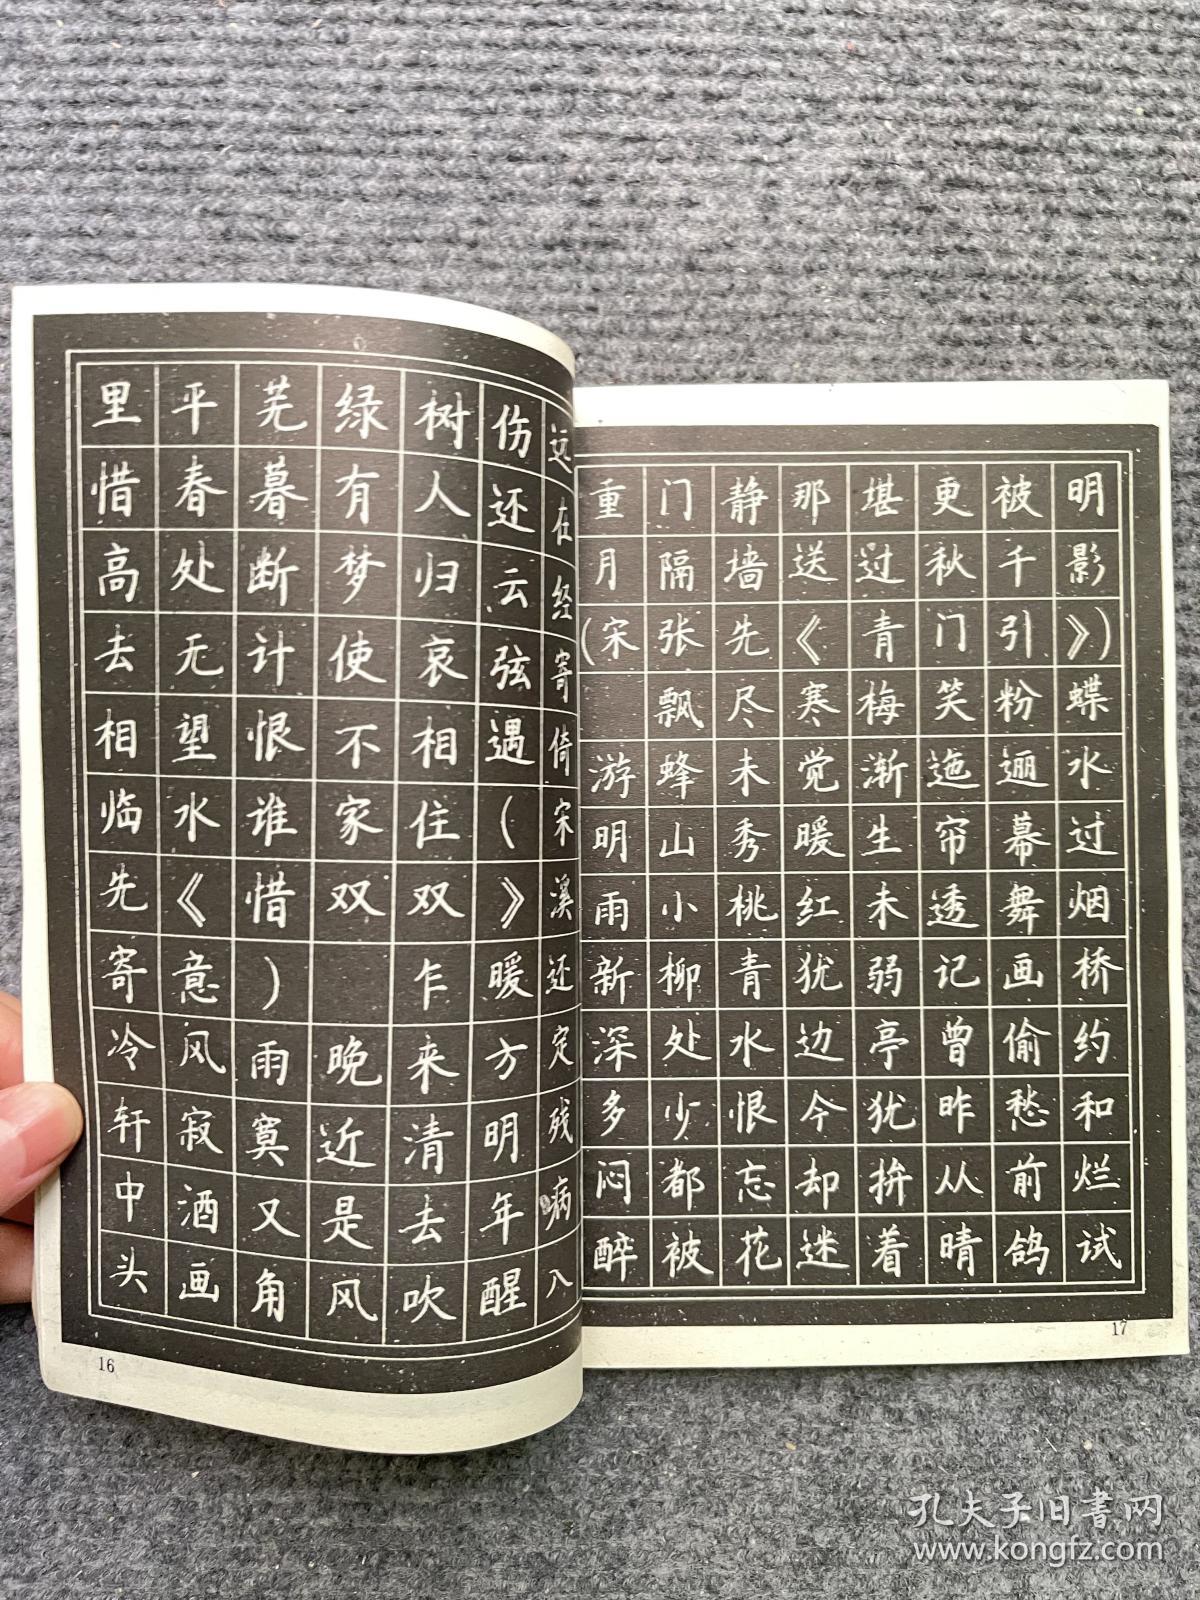 里平芜绿树伤远
惜春暮有人还在
高处断梦归云经
去无计使哀弦寄
相望恨不相遇倚
临水谁家住(宋
先《惜双双》溪
寄意) 乍暖还
冷风雨晚来方定
轩寂寞近清明残
中酒又是去年病
头画角风吹醒入
16
重门静那堪更被明
月隔墙送过秋千影
(宋张先《青门引》)
飘尽寒梅笑粉蝶
游蜂未觉渐迤逦水
明山秀暖生帘幕过
雨小桃红未透舞烟
新柳青犹弱记画桥
深处水边亭曾偷约
多少恨今犹昨愁和
闷都忘却拚从前烂
醉被花迷着晴鸽试
17
孔夫子旧书网
www.kongfz.com